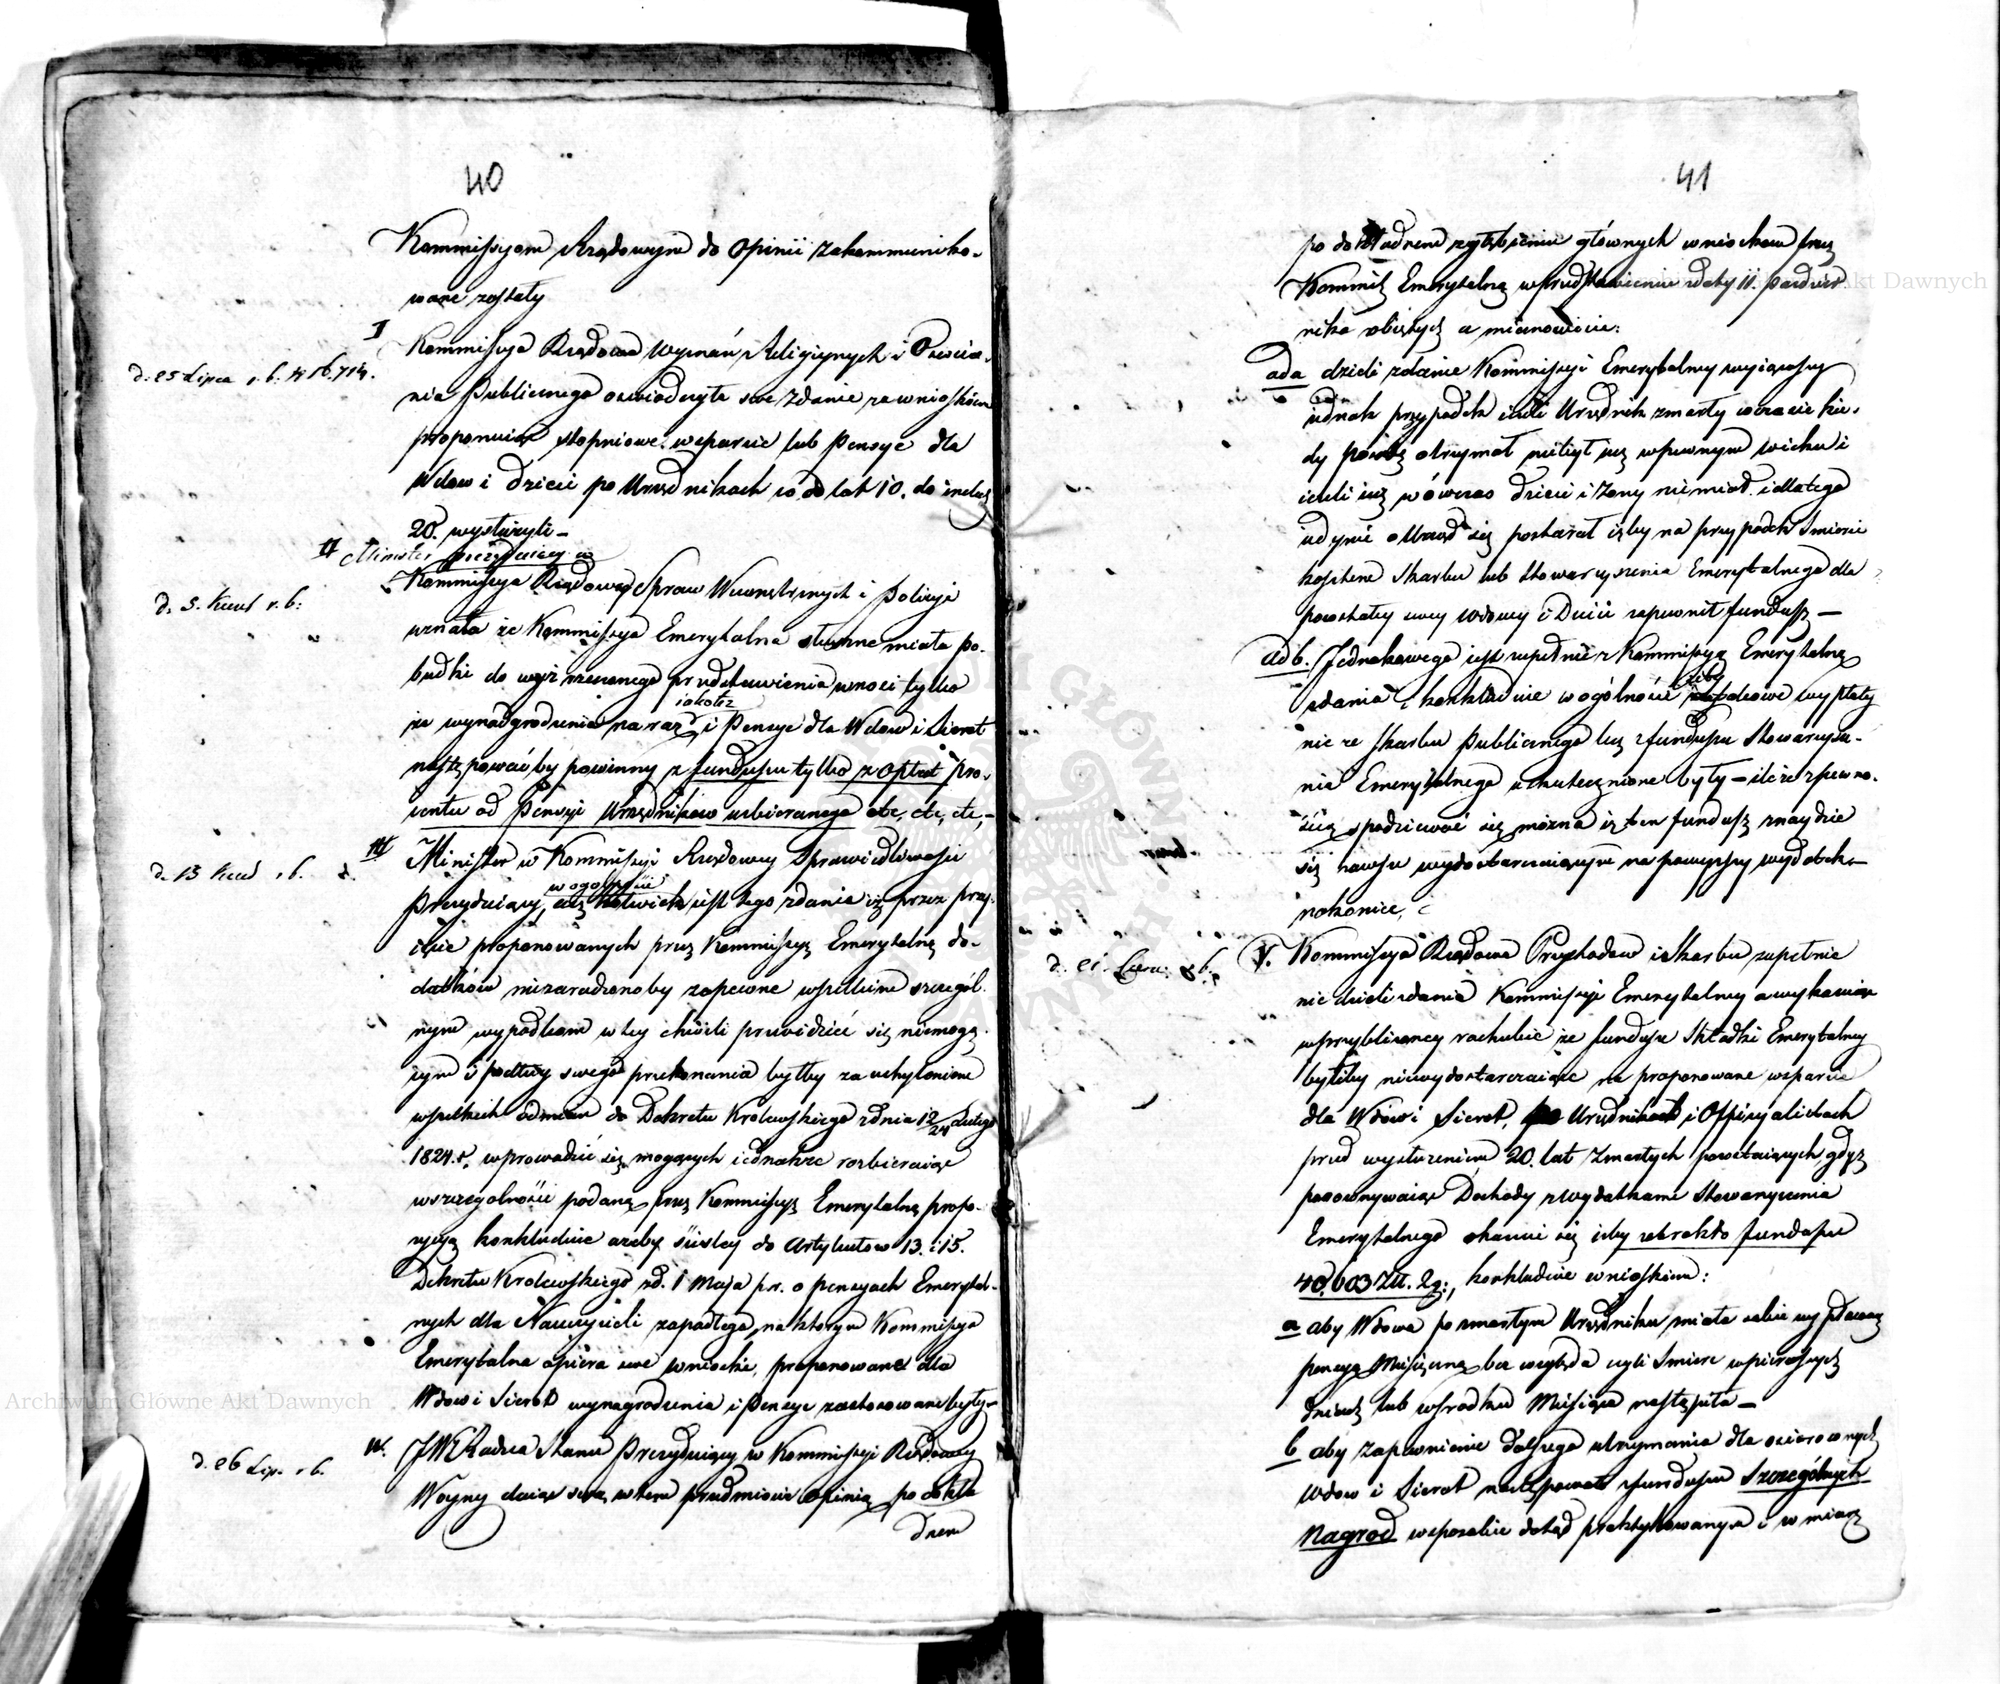 40
Kommissyom Rządowym do Opinii zakommuniko-
wane zostały
I
d. 25 Lipca r. b. N 16,714.
Kommissya Rządowa Wyznań Religiynych i Oswiece-
nia Publicznego oswiadczyła swe zdanie za wnioskiem
proponuiąc stopniowe wsparcie lub Pensye dla
Wdow i dzieci po Urzędnikach co do lat 10. do
20. wysłużyli -
II Minister prezyduiący w
d. 5. r. b:
Kommissyi Rządowey Spraw Wewnętrznych i Policyi
uznała że Kommissya Emerytalna słuszne miała po-
budki do wyż rzeczonego przedstawienia wnosi tylko
iakoteż
że wynadgrodzenia na raz i Pensye dla Wdow i Sierot
następować by powinny z funduszu tylko z Opłat pro-
centu od Pensyi Urzędnikow uzbieranego etc, etc, etc,-
III
d. 13 r. b.
Minister w Kommissyi Rządowey Sprawiedliwosci
w ogolności
Prezyduiący, iest tego zdania iż przez przy-
ięcie proponowanych przez Kommissyę Emerytalną do-
datków niezaradzonoby zapewne wszelkim szczegól-
nym wypadkom w tey chwili przewidzieć się niemogą-
cym i podług swego przekonania byłby za uchyleniem
wszelkich odmian do Dekretu Krolewskiego z dnia 12/24 Lutego
1824. r. wprowadzić się mogących iednakże rozbieraiąc
wszczegolności podaną przez Kommissyę Emerytalną propo-
zycyę konkluduie ażeby scisley do Artykułow 13. i 15.
Dekretu Krolewskiego z d. 1 Maja p.r. o pensyach Emerytal-
nych dla Nauczycieli zapadłego, na ktorym Kommissya
Emerytalna opiera swe wnioski, proponowane dla
Wdow i Sierot wynagrodzenia i Pensye zastosowane były -
IV.
d. 26 Lip. r. b.
JW Radca Stanu Prezyduiący w Kommissyi Rządowey
Woyny daiąc swą w tem przedmiocie opinią po dokła
dnem
41
po dokładnem zgłębieniu głównych wniosków przez
Kommis: Emerytalną w przedstawieniu z daty 11. Paździer
nika obiętych a mianowicie:
ad a dzieli zdanie Kommissyi Emerytalney wyiąwszy
iednak przypadek ieżeli Urzędnik zmarły w czasie kie-
dy posadę otrzymał nie był iuż w pewnym wieku i
ieżeli iuż wówczas dzieci i żony niemiał i dlatego
iedynie o Urząd się postarał iżby na przypadek Smierci
kosztem Skarbu lub Stowarzyszenia Emerytalnego dla
pozostałey swey Wdowy i Dzieci zapewnił fundusz -
ad b. Jednakowego iest zupełnie z Kommissyą Emerytalną
żeby
zdania i konkluduie w ogólności wypłaty
nie ze Skarbu Publicznego lecz z funduszu Stowarzysze-
nia Emerytalnego uskutecznione były - ile że z pewno-
ścią spodziewać się można iż ten fundusz znaydzie
się zawsze wydostarczaiącym na powyższy wydatek -
nakoniec,
d. 21 r. b.
V. Kommissya Rządowa Przychodow i Skarbu zupełnie
nie dzieli zdania Kommissyi Emerytalney a wykazuiąc
w przybliżoney rachubie że fundusz Składki Emerytalney
byłby niewydostarczaiące na proponowane wsparcie
dla Wdów i Sierot, po Urzędnikach i Officyalistach
przed wysłużeniem 20. lat Zmarłych pozostaiących, gdyż
porownywaiąc Dochody z Wydatkami Stowarzyszenia
Emerytalnego okazuie się iżby zabrakło funduszu
40,603 Zł. 2 g:, konkluduie wnioskiem:
a aby Wdowa po zmarłym Urzędniku miała sobie wypłaconą
pensyą Miesięczną bez względu czyli Smierc w pierwszych
dniach lub w srodku Miesiąca nastąpiła -
b aby zapewnienie dalszego utrzymania dla osierociałych
Wdow i Sierot następowało z funduszu Szczególnych
Nagrod w sposobie dotąd praktykowanym i w miarę